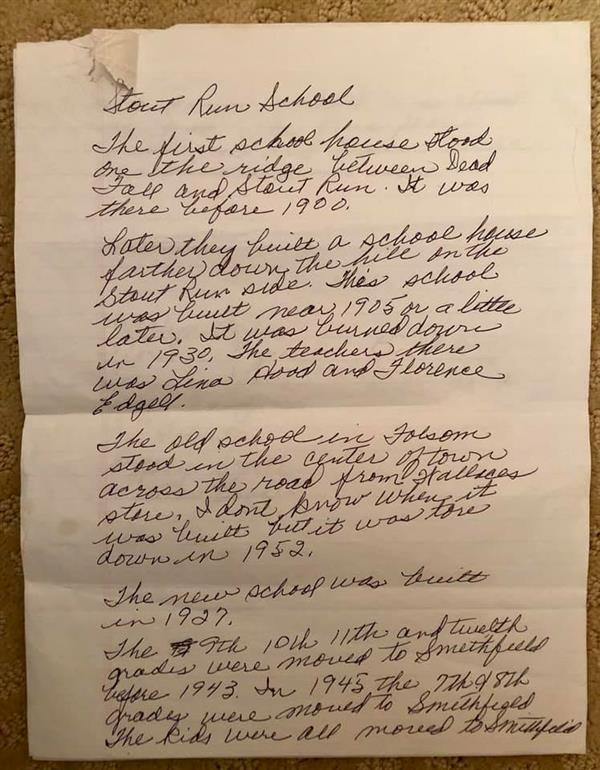 Stout Run School
The first school house stood
one the ridge between Dead
Fall and Stout Run. It was
there before 1900.
Later they built a school house
farther down the hill on the
Stout Run side. This school
was built near 1905 or a little
later. It was burned down
in 1930. The teachers there
was Lina Hood and Florence
Edgell.
The old school in Folsom
stood in the center of town
across the road from Wallaces
store. I dont know when it
was built but it was tore
down in 1952.
The new school was built
in 1927.
The 9th 10th 11th and twelth
grades were moved to Smithfield
before 1943. In 1945 the 7th & 8th
grades were moved to Smithfield
The kids were all moved to Smithfield